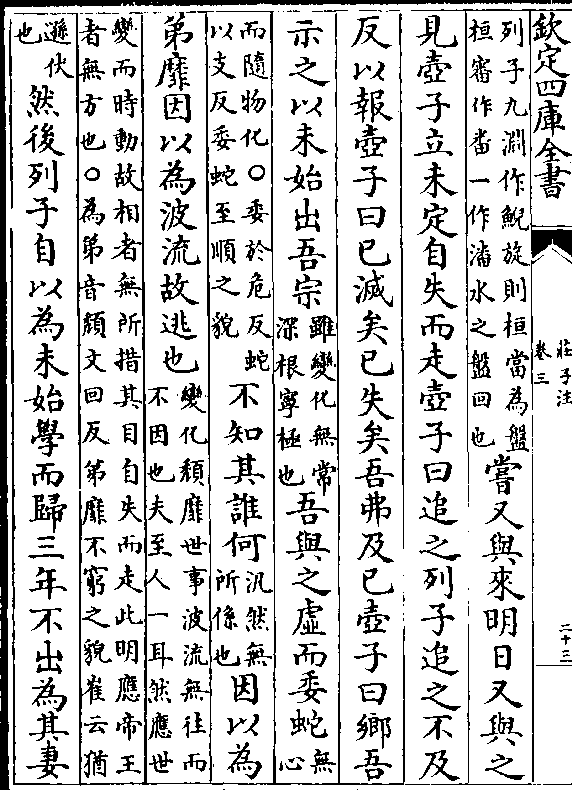 欽定四庫全書
莊子注
卷三
二十三
列子九淵作鯢旋則桓當為盤
桓審作番一作潘水之盤回也
嘗又與來明日又與之
見壺子立未定自失而走壺子曰追之列子追之不及
反以報壺子曰已滅矣已失矣吾弗及已壺子曰鄉吾
示之以未始出吾宗
雖變化無常
深根寧極也
吾與之虛而委蛇
無
心
而隨物化○委於危反蛇
以支反委蛇至順之貌
不知其誰何
汎然無
所係也
因以為
弟靡因以為波流故逃也
變化頹靡世事波流無往而
不因也夫至人一耳然應世
變而時動故相者無所措其目自失而走此明應帝王
者無方也○為弟音頹文回反弟靡不窮之貌崔云猶
遜伏
也
然後列子自以為未始學而歸三年不出為其妻